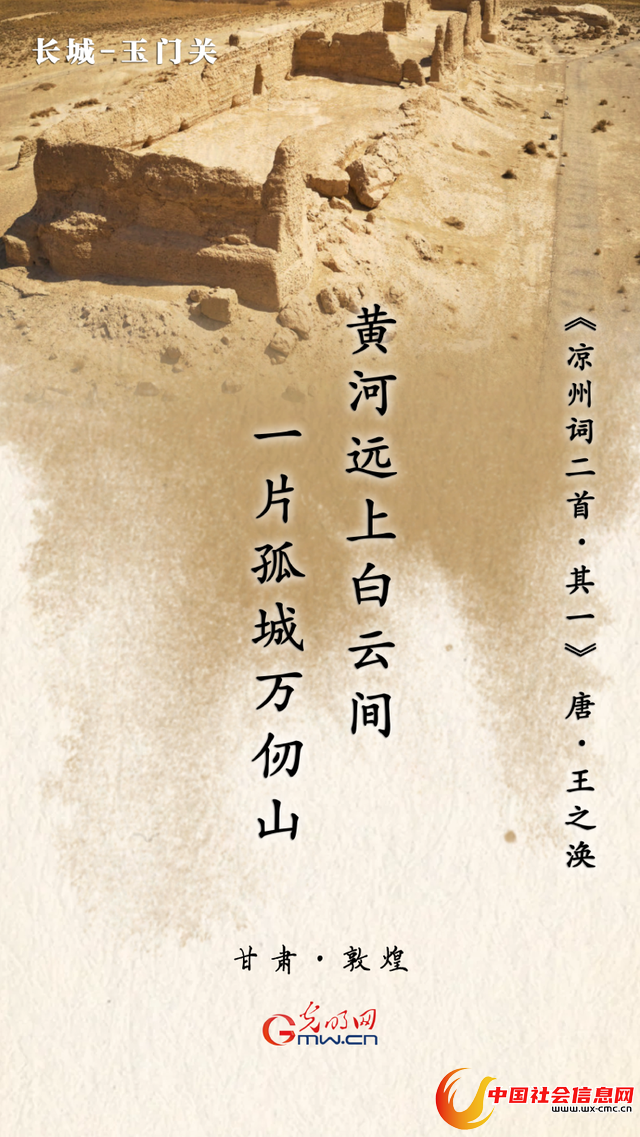 长城-玉门关
《凉州词二首·其一》 唐·王之涣
黄河远上白云间
一片孤城万仞山
甘肃·敦煌
光明网
GMW.CN
中国社会信息网
www.wx-cmc.cn